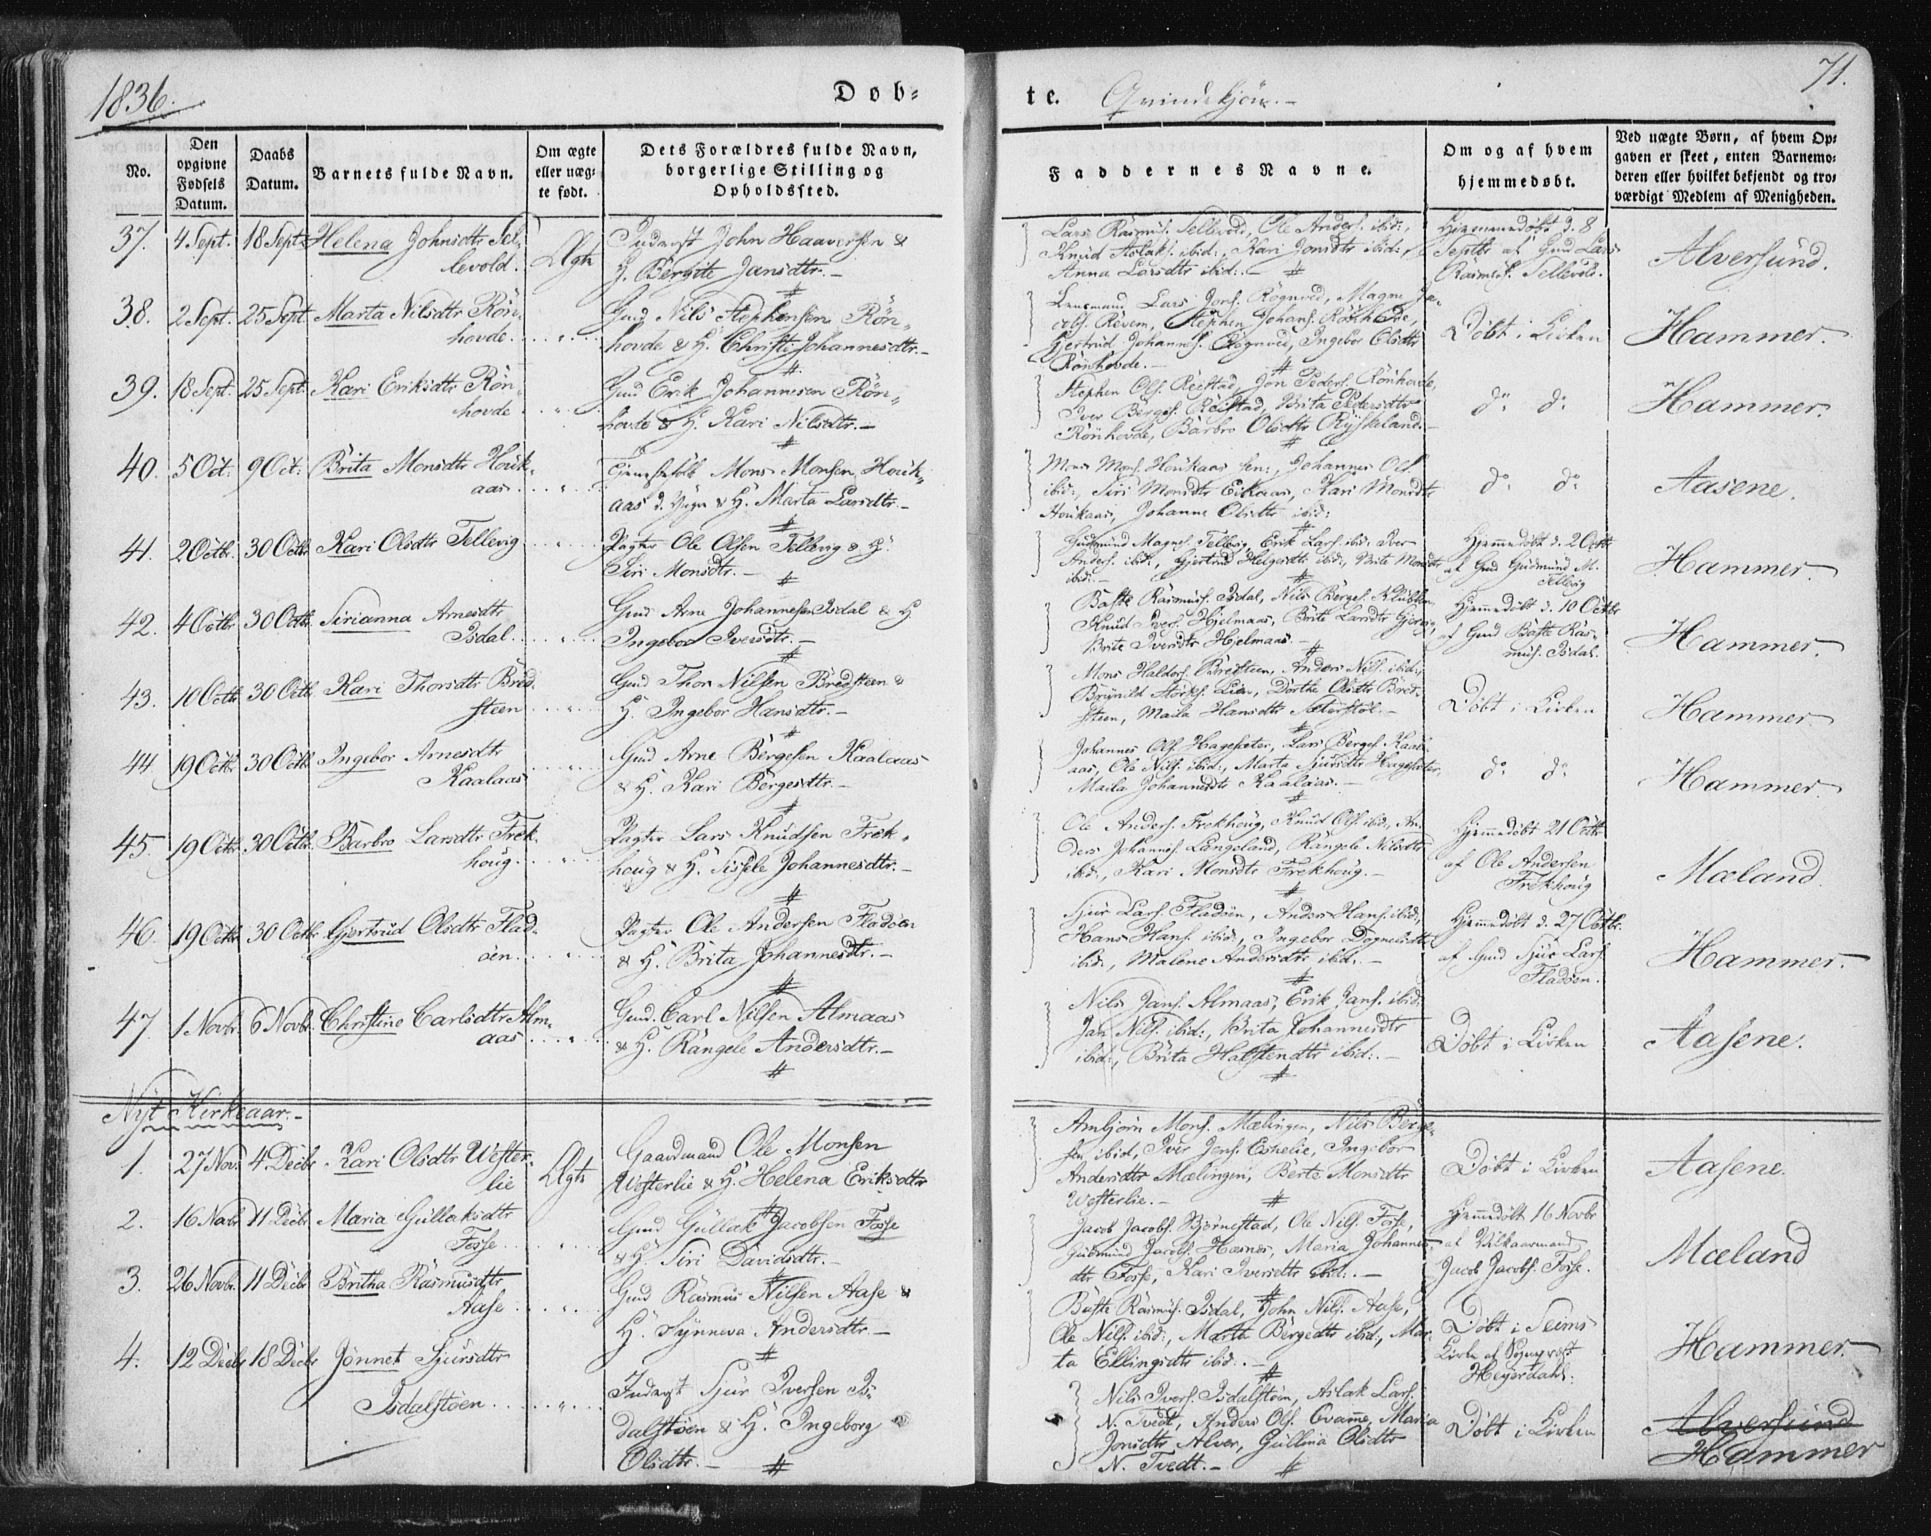 1836.
Dobte. Qvindekjön.
71.
No.
Den opgivne Fødsels Datum.
Daabs Datum.
Barnets fulde Navn.
Om ægte eller uægte født.
Dets Forældres fulde Navn, borgerlige Stilling og Opholdssted.
Faddernes Navne.
Om og af hvem hjemmedøbt.
Ved uægte Børn, af hvem Opgaven er skeet, enten Barnemoderen eller hvilket bekjendt og troværdigt Medlem af Menigheden.
37. 4 Sept. 18 Sept. Helena Johnsdtr Tel-
levold. Ægte
Inderst John Haaversen &
H. Bergite Jansdtr.
Lars Rasmus. Tellevold, Ole Anders. ibid:,
Knud Aslaks. ibid:, Kari Jonsdtr ibid:,
Anna Larsdtr ibid:.
Hjemmedöbt d. 8
Septbr af Gmd Lars
Rasmus. Tellevold.
Alversund.
38. 2 Sept. 25 Sept. Marta Nilsdtr Rön-
hovde
Gmd Nils Stephensen Rön-
hovde & H. Christi Johannesdtr.
Lensmand Lars Jons. Rögnved, Magne Ja-
cobs. Revem, Stephen Johans. Rönhovde,
Gjertrud Johannes. Rögnved, Ingebor Olsdtr
Rönhovde.
Döbt i Kirken
Hammer.
39. 18 Sept. 25 Sept. Kari Eriksdtr Rön-
hovde
Gmd Erik Johannesen Rön-
hovde & H. Kari Nilsdtr.
Stephen Ols. Reistad, Jon Peders. Rönhovde,
Iver Berges. Reistad, Brita Pedersdtr
Rönhovde, Barbro Olsdtr Ryskeland.
do do
Hammer.
40. 5 Oct. 9 Oct. Brita Monsdtr Houk-
aas
Tjenestefolk Mons Monsen Houk-
aas d. Yngre & H. Marta Larsdtr.
Mons Mons. Houkaas sen:, Johannes Ols.
ibid:, Siri Monsdtr Eikaas, Kari Monsdtr
Houkaas, Johanne Olsdtr ibid:
do do
Aasene.
41. 2 Octbr 30 Octbr. Kari Olsdtr Tellevig
Pagter Ole Olsen Tellevig & H.
Siri Monsdtr.
Gudmund Magnes. Tellevig, Erik Lars. ibid: Iver
Anders. ibid:, Gjertrud Helgesdtr ibid:, Brita Monsdtr
ibid:
Hjemmedöbt d. 2 Octbr
af Gmd Gudmund M.
Tellevig
Hammer.
42. 4 Octbr 30 Octbr. Sirianna Arnesdtr
Isdal
Gmd Arne Johannesen Isdal & H.
Ingebor Iversdtr.
Baste Rasmus. Isdal, Nils Berges.
Knud Ivers. Hjelmaas, Brite Larsdtr
Brite Iversdtr Hjelmaas.
Hjemmedöbt d. 10 Octbr
af Gmd Baste Ras-
mus. Isdal.
Hammer.
43. 10 Octbr 30 Octbr. Kari Thorsdtr Bred-
steen
Gmd Thor Nilsen Bredsteen &
H. Ingebor Hansdtr.
Mons Haldors. Bredsteen, Anders Nils. ibid:,
Brynild Lien, Dorthe Olsdtr Bred-
steen, Maila Hansdtr Sæterstöl.
Döbt i Kirken
Hammer.
44 19 Octbr. 30 Octbr. Ingebor Arnesdtr
Kaalaas
Gmd Arne Bergesen Kaalaas
& H. Kari Bergesdtr.
Johannes Ols. Hagesæter, Lars Berges. Kaal-
aas, Ole Nils. ibid:, Marta Sjursdtr Hagesæter,
Maila Johannesdtr Kaalaas.
do do
Hammer.
45. 19 Octbr 30 Octbr. Barbro Larsdtr Frek-
houg
Pagter Lars Knudsen Frek-
houg & H. Sissele Johannesdtr.
Ole Anders. Frekhoug, Knud Ols. ibid:, An-
ders Johannes. Langeland, Rangele Nilsdtr
ibid:, Kari Monsdtr Frekhoug.
Hjemmedöbt 21 Octbr
af Ole Andersen
Frekhoug
Mæland.
46. 19 Octbr. 30 Octbr. Gjertrud Olsdtr Flad-
öen
Pagter Ole Andersen Fladöen
& H. Brita Johannesdtr.
Sjur Lars. Fladöen, Anders Hans. ibid:,
Hans Hans. ibid:, Ingebor Dognelsdtr
ibid:, Malene Andersdtr ibid:.
Hjemmedöbt d. 27 Octbr.
af Gmd Sjur Lars.
Fladöen.
Hammer.
47. 1 Novbr. 6 Novbr. Christine Carlsdtr Alm-
aas
Gmd. Carl Nilsen Almaas
& H. Rangele Andersdtr.
Nils Jans. Almaas, Erik Jans. ibid:
Jan Nils. ibid:, Brita Johannesdtr
ibid:, Brita Halstendtr ibid:.
Döbt i Kirken
Aasene.
Nyt Kirkeaar.
1. 27 Nov. 4 Decbr Kari Olsdtr Wester-
lie Ægte
Gaardmand Ole Monsen
Westerlie & H. Helena Eriksdtr
Ambjörn Mons. Mælingen, Nils Berge-
sen ibid, Iver Jens. Eshelie, Ingebor
Andersdtr Mælingen, Berte Monsdtr
Westerlie.
Döbt i Kirken
Aasene.
2. 16 Novbr 11 Decbr Maria Gullaksdtr
Fosse
Gmd Gullak Jacobsen Fosse
& H. Siri Davidsdtr.
Jacob Jacobs. Björnestad, Ole Nils. Fosse,
Gudmund Jacobs. Hæsnes, Maria Johannes-
dtr Fosse, Kari Iversdtr ibid:.
Hjemmedöbt 16 Novbr
af Vilkaarmand
Jacob Jacobs. Fosse.
Mæland
3. 26 Novbr. 11 Decbr Britha Rasmusdtr
Aase
Gmd Rasmus Nilsen Aase &
H. Synneva Andersdtr.
Baste Rasmus. Isdal, John Nils. Aase,
Ole Nils. ibid:, Marta Bergedtr ibid:, Mar-
ta Ellingsdtr ibid:.
Döbt i Seims
Kirke af Sognepræst
Heyerdahl.
Hammer
4. 12 Decbr 18 Decbr Jönnet Sjursdtr
Isdalstöen
Inderst Sjur Iversen Is-
dalstöen & H. Ingeborg
Olsdtr.
Nils Ivers. Isdalstöen, Aslak Lars.
N. Tvedt, Anders Ols. Qvamme, Maria
Jonsdtr Alver, Gullina Olsdtr
N. Tvedt.
Döbt i Kirken
Alversund
Hammer